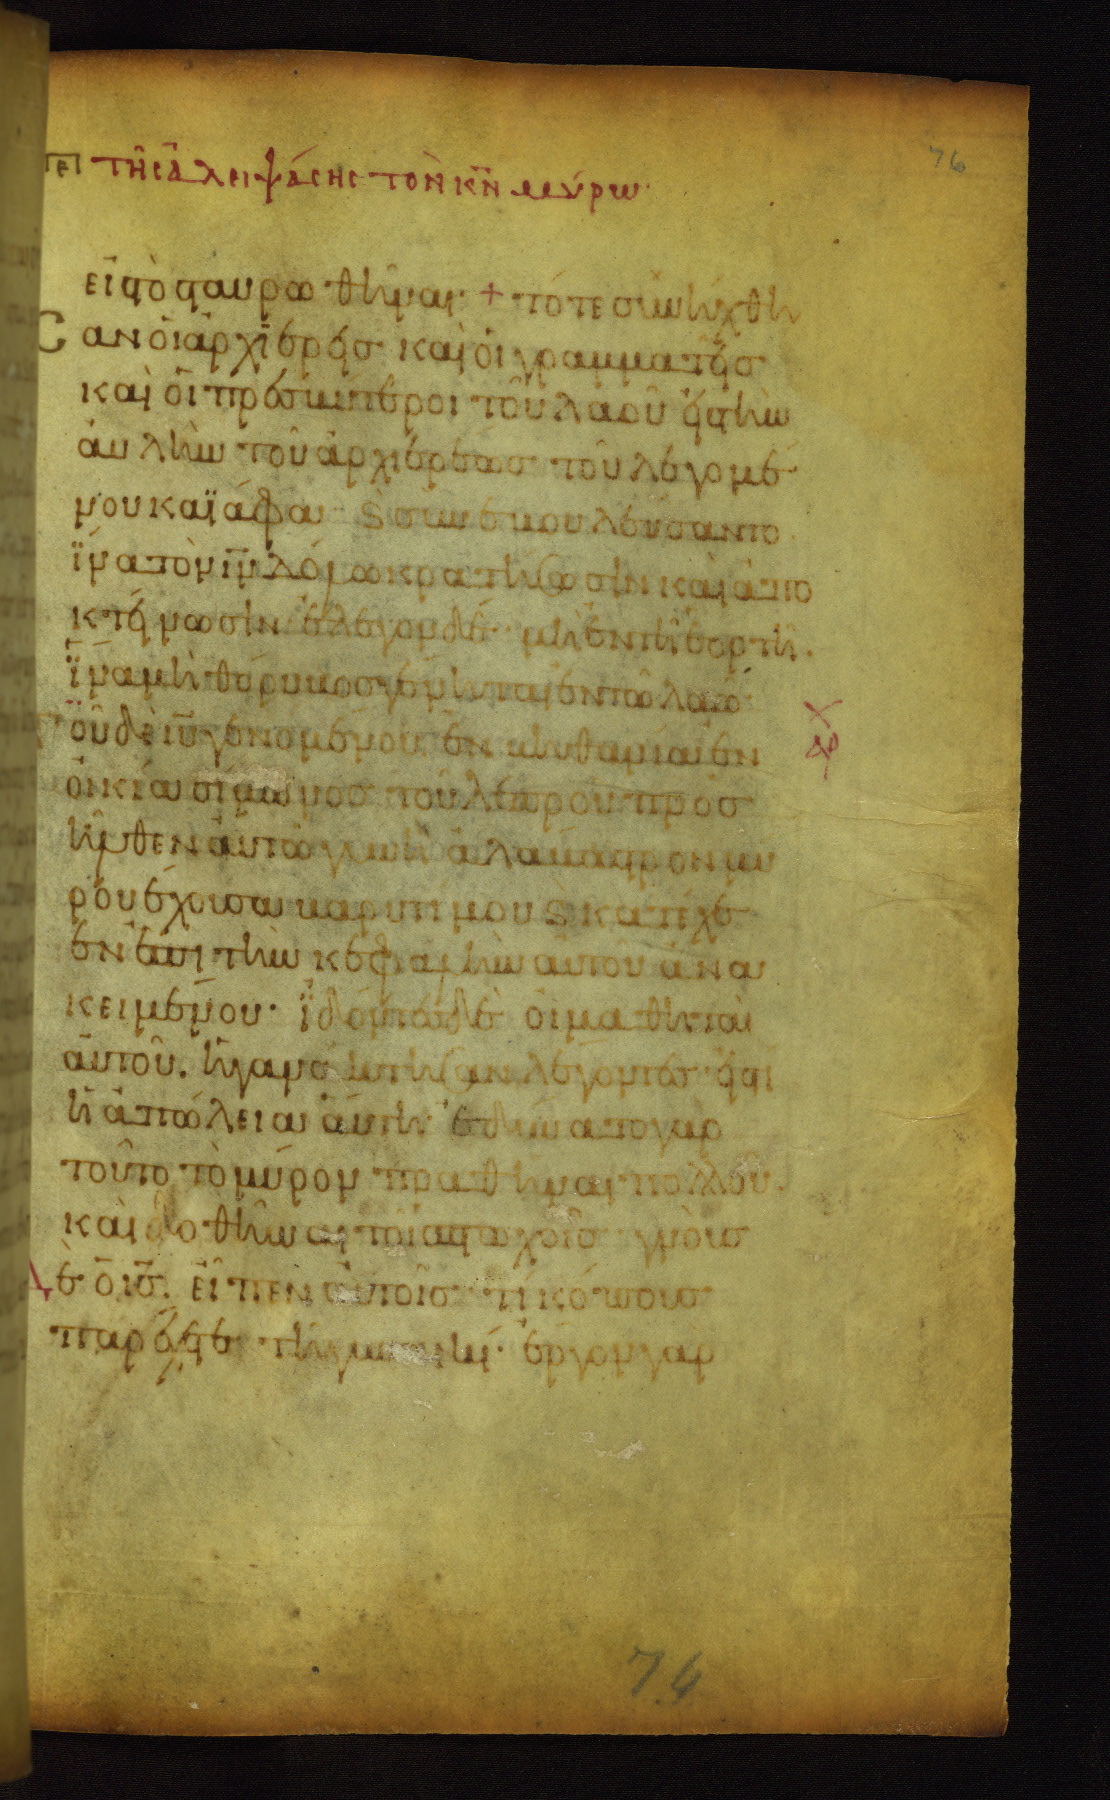 76
τῆς ἀλειψάσης τὸν κν μύρω
εἰς τὸ σταυρωθῆναι + τότε συνήχθη
σαν οἱ ἀρχιερεῖς καὶ οἱ γραμματεῖς
καὶ οἱ πρεσβύτεροι τοῦ λαοῦ εἰς τὴν
αὐλὴν τοῦ ἀρχιερέως τοῦ λεγομέ
νου καϊάφα ϗ συνεβουλεύσαντο
ἵνα τὸν ιν δόλω κρατήσωσιν καὶ ἀπο
κτείνωσιν ἔλεγον δέ μὴ ἐν τῆ ἑορτῆ.
ἵνα μὴ θόρυβος γένηται ἐν τῶ λαῶ
οῦ δὲ ιυ γενομένου ἐν βηθανία ἐν
οἰκία σίμωνος τοῦ λεπροῦ προσ
ῆλθεν αὐτῶ γυνὴ ἀλάβαστρον μύ
ρου ἔχουσα βαρυτίμου ϗ κατέχε
εν ἐπὶ τὴν κεφαλὴν αὐτοῦ ἀνα
κειμένου. ἰδόντες δὲ οἱ μαθηταὶ
αὐτοῦ. ἠγανάκτησαν λέγοντες εἰς τί
ἡ ἀπώλεια αὕτη ἐδύνατο γὰρ
τοῦτο τὸ μύρον πραθῆναι πολλοῦ.
καὶ δοθῆναι τοῖς πτωχοῖς γνοὺς
δὲ ὁ ις. εἶπεν αὐτοῖς τί κόπους
παρέχετε τῆ γυναικί. ἔργον γὰρ
74